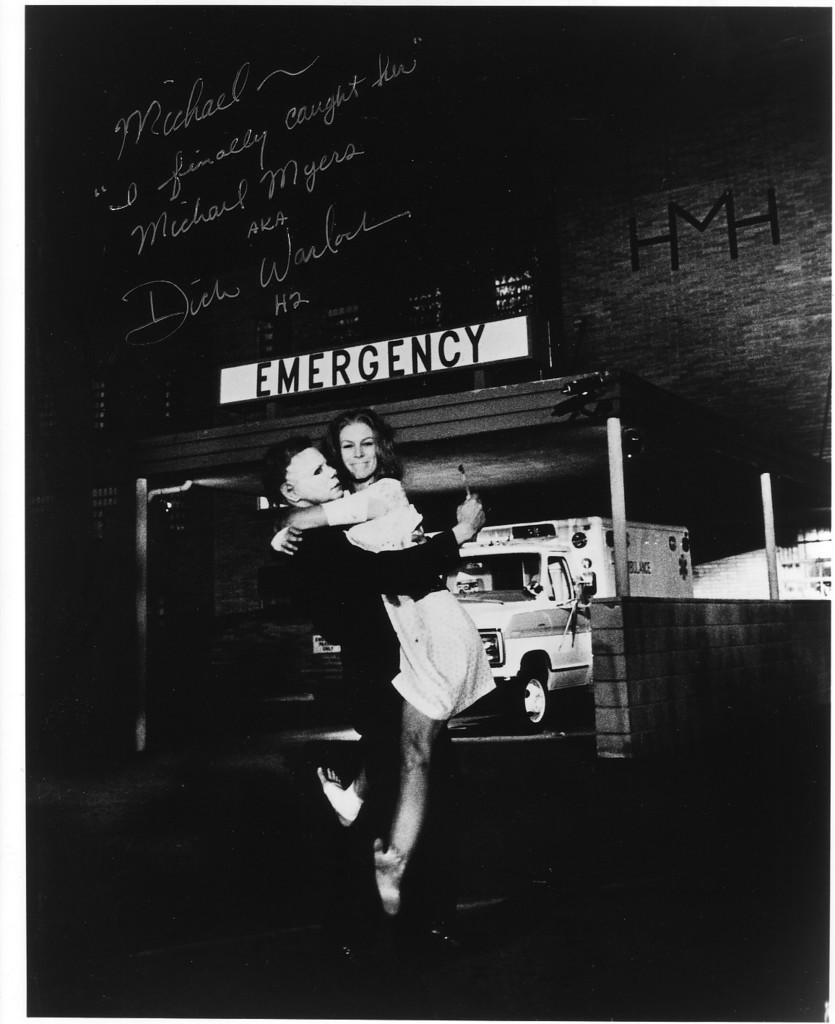 Michael ~
"I finally caught her"
Michael Myers
AKA
Dick Warlock
H2
HMH
EMERGENCY
BULANCE
ONLY